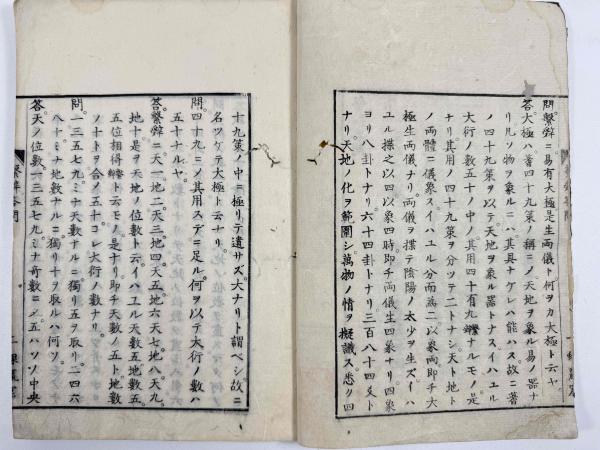 問繫辭ニ易有大極是生両儀ト何ヲカ大極ト云ヤ
答大極ハ蓍四十九策ノ稱ニメ天地ヲ象ル易ノ器ナ
リ凡ソ物ヲ象ルニハ其具ナケレハ能ハス故ニ蓍
ノ四十九策ヲ以テ天地ヲ象ル器トナスイハユル
大行ノ數五十ノ中ニノ其用四十有九繫辭ナルモノ是
ナリ其用ノ四十九策ヲ分ツテ二トナシ天ト地ト
ノ両體ニ儀象スイハユル分而為二以象両即チ大
極生両儀ナリ両儀ヲ揲テ陰陽ノ太少ヲ生スイハ
ユル揲之以四以象四時即チ両儀生四象ナリ四象
ヨリ八卦トナリ六十四卦トナリ三百八十四爻ト
ナリ天地ノ化ヲ範圍シ萬物ノ情ヲ擬議ス悉ク四
十九策ノ中ニ極リテ遺サズ大ナリト謂ベシ故ニ
名ツケテ大極ト云ナリ
問四十九ニノ其用ステニ足ル何ヲ以テ大行ノ數ハ
五十ナルヤ
答繫辭ニ天一地二天三地四天五地六天七地八天九
地十是ヲ天地ノ位數ト云イハユル天數五地數五
五位相得繫辭ト云モノ是ナリ即チ天數ノ五ト地數
ノ十トヲ合ノ五十コレ大行ノ數ナリ
問一三五七九ミナ天數ナルニ獨リ五ヲ取リ二四六
八十ミナ地數ナルニ獨リ十ヲ取ルハ何ソ
答天ノ位數一三五七九ミナ奇數ニノ五ハソノ中央
繫辭答問